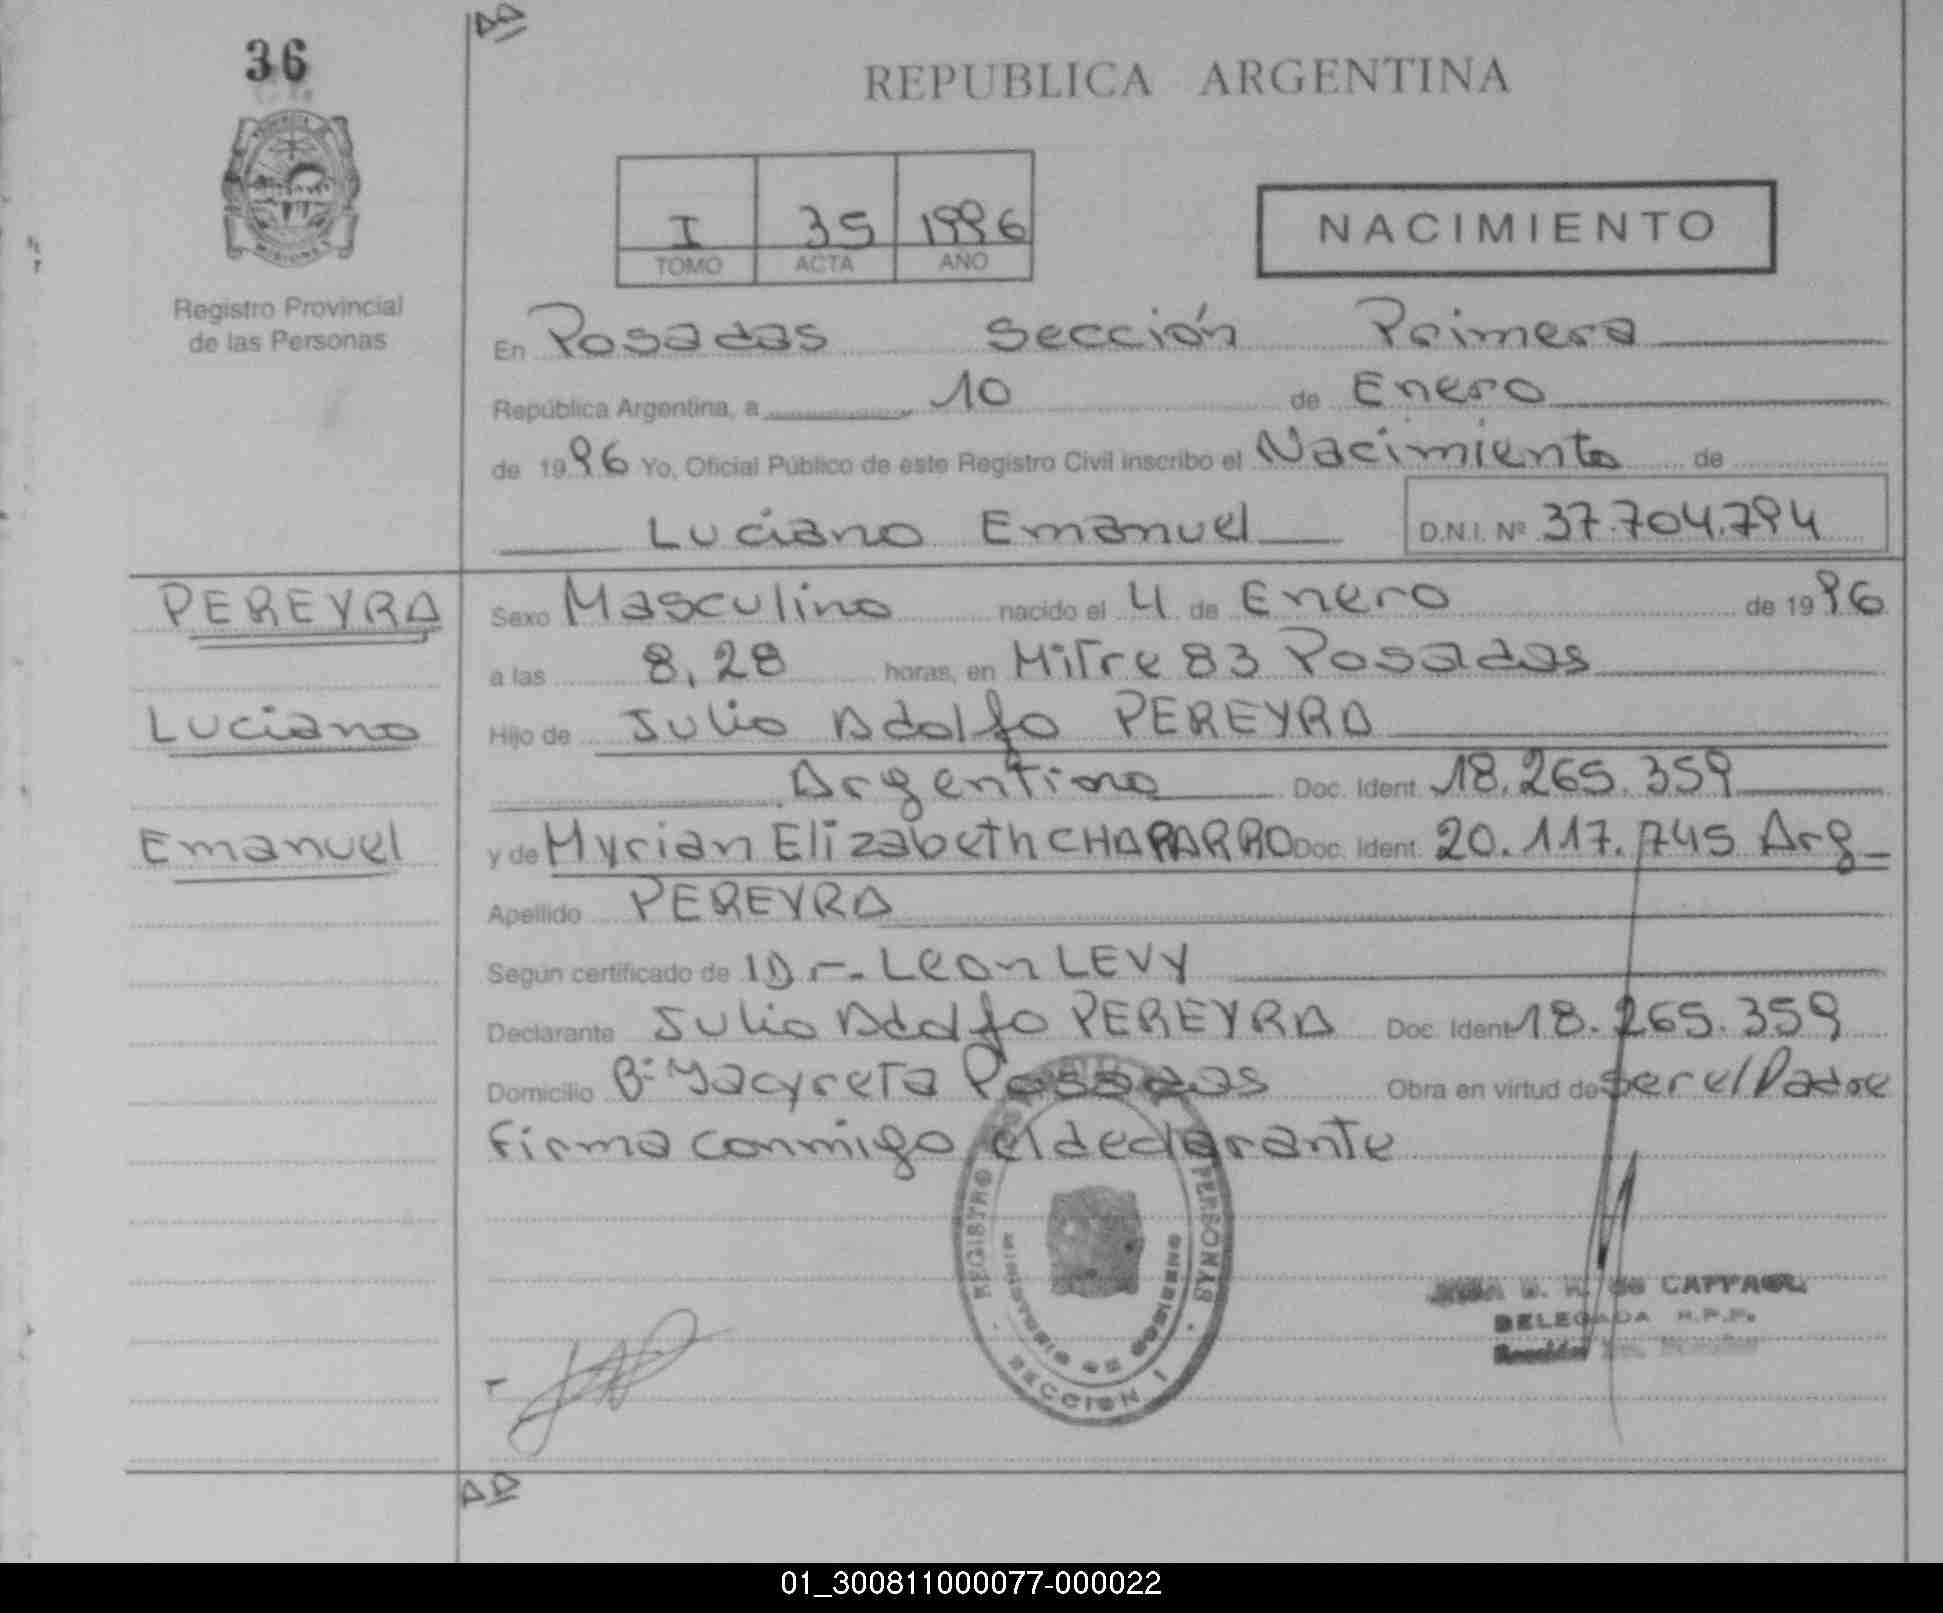 36
REPUBLICA ARGENTINA
PROVINCIA DE
MISIONES
I 35 1996
TOMO ACTA AÑO
NACIMIENTO
Registro Provincial
de las Personas
En Posadas sección Primera
República Argentina, a 10 de Enero
de 1996 Yo, Oficial Público de este Registro Civil inscribo el Nacimiento de
Luciano Emanuel D.N.I. Nº 37.704.794
PEREYRA
Luciano
Emanuel
Sexo Masculino nacido el 4 de Enero de 1996
a las 8,28 horas, en Mitre 83 Posadas
Hijo de Julio Adolfo PEREYRA
Argentino Doc. Ident. 18.265.359
y de Myrian Elizabeth CHAPARRO Doc. Ident. 20.117.745 Arg
Apellido PEREYRA
Según certificado de Dr. Leon LEVY
Declarante Julio Adolfo PEREYRA Doc. Ident 18.265.359
Domicilio Bº Yacyreta Posadas Obra en virtud de ser el Padre
Firma conmigo el declarante
REGISTRO PERSONAS
MINISTERIO DE GOBIERNO
SECCION I
de
DELEGADA R.P.P.
Sección
01_300811000077-000022